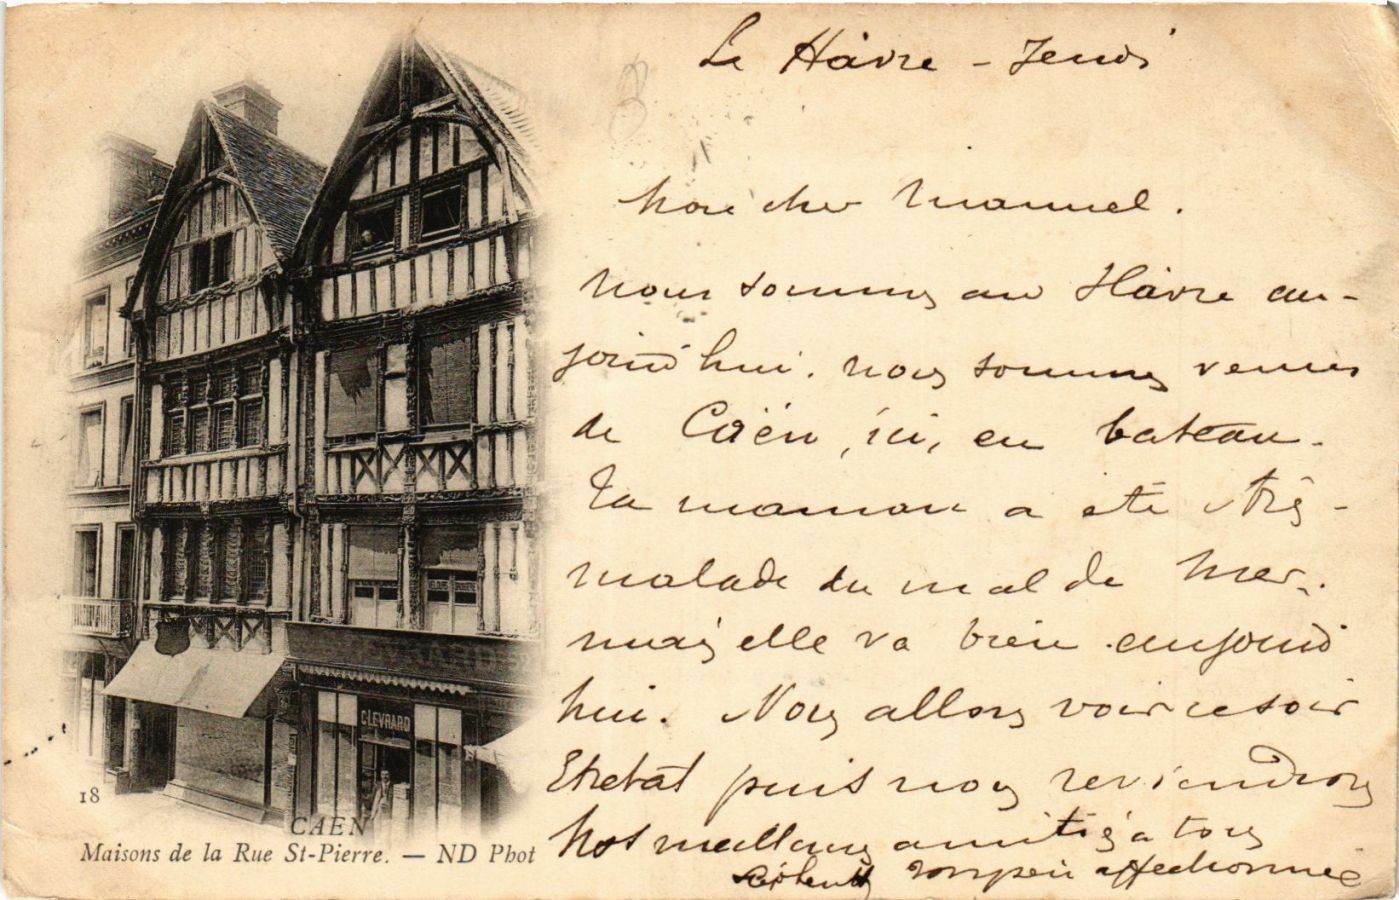 Le Hâvre - Jeudi
Mon cher Manuel.
Nous sommes au Hâvre au-
jourd'hui. nous sommes venus
de Caën, ici, en bateau.
Ta maman a été très
malade du mal de mer.
mais elle va bien aujourd
hui. Nous allons voir ce soir
Etretat puis nous reviendrons
Nos meilleures amitiés a tous
affectionné
C. LEVRARD
18
CAEN
Maisons de la Rue St-Pierre. — ND Phot